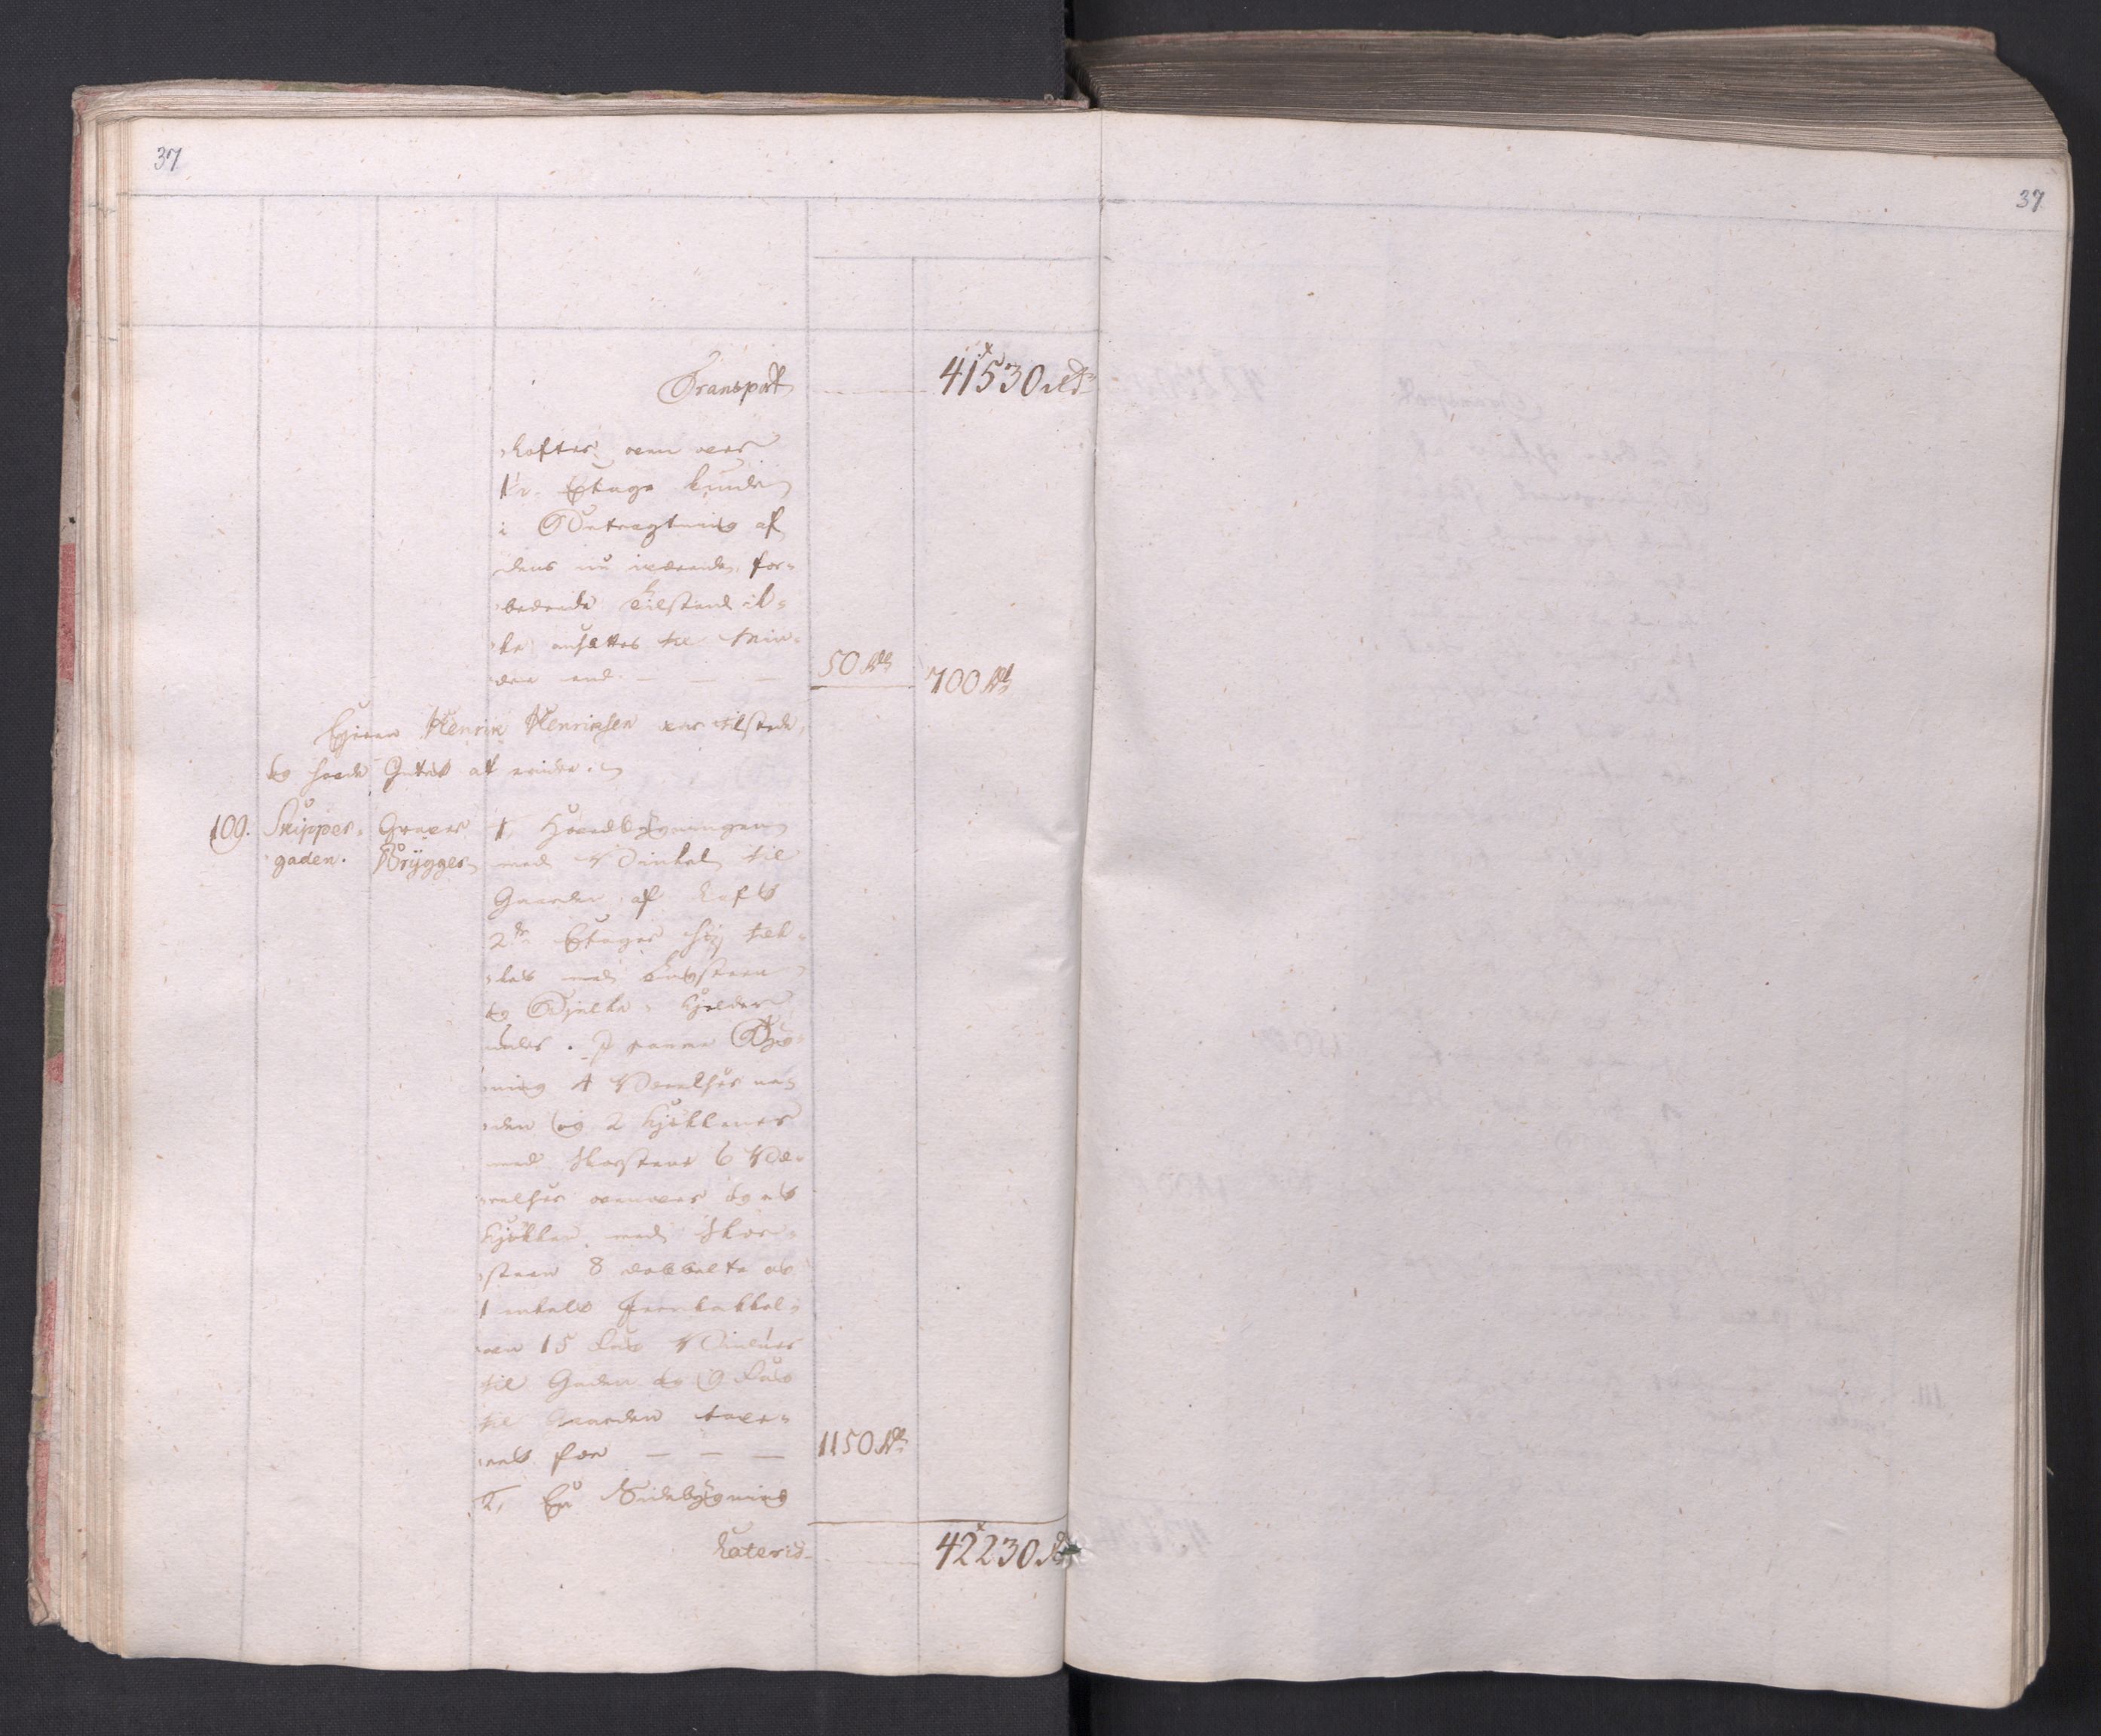 37
37
Transport 41530 rd
Lofter oven over
1 Etage kunde
i Betragtning af
dens nu værende for-
bedrede Tilstand ik-
ke ansættes til min-
dre end 50 Rd 700 Rd
Ejeren Henrik Henrichsen var tilstede,
og havde Intet at erindre.
109. Skipper-
gaden.
Graver
Brÿgger
1, Hovedbÿgningen
med Vinkel til
Gaarden af Laft
2de Etager høj tæk-
ket med Tagsteen
og Kjelder
under. I samme Bÿg-
ning 4 Værelser ne-
den og 2 Kjøkkener
med Skorsteene 6 Væ-
relser ovenover og et
Kjøkken med Skor-
steen 8 dobbelte og
1 enkelt Jernkakkel-
oven 15 Fag Vinduer
til Gaden og 9 Fag
til Gaarden taxe-
ret for 1150 Rd
2, En Sidebÿgning
Lateris 42230 Rd